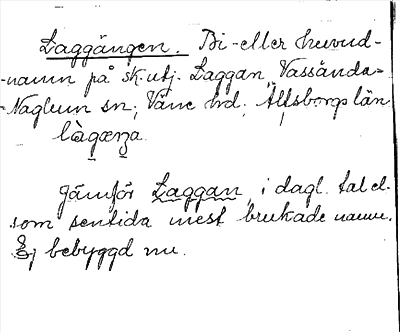 Laggängen. Bi- eller huvud-
-namn på sk. utj. Laggan, Vassända-
-Naglum sn; Väne hd; Älfsborgs län
Jämför Laggan, i dagl. tal el.
som sentida mest brukade namn.
Ej bebyggd nu.